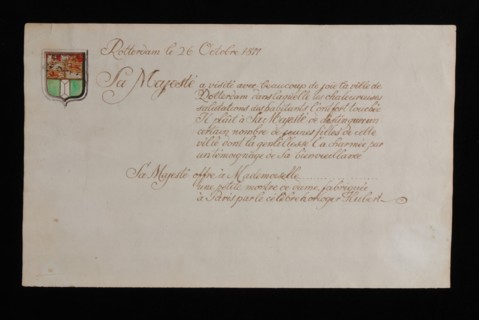 Rotterdam le 26 Octobre 1811
Sa Majesté a visité avec beaucoup de joie la ville de
Rotterdam dans laquelle les chaleureuses
salutations des habitants l'ont fort touchée
Il plait à Sa Majesté de distinguer un
certain nombre de jeunes filles de cette
ville dont la gentillesse l'a charmée par
un témoignage de Sa bienveillance
Sa Majesté offre à Mademoiselle ..................
une petite montre de dame, fabriquée
à Paris par le célèbre horloger Hubert